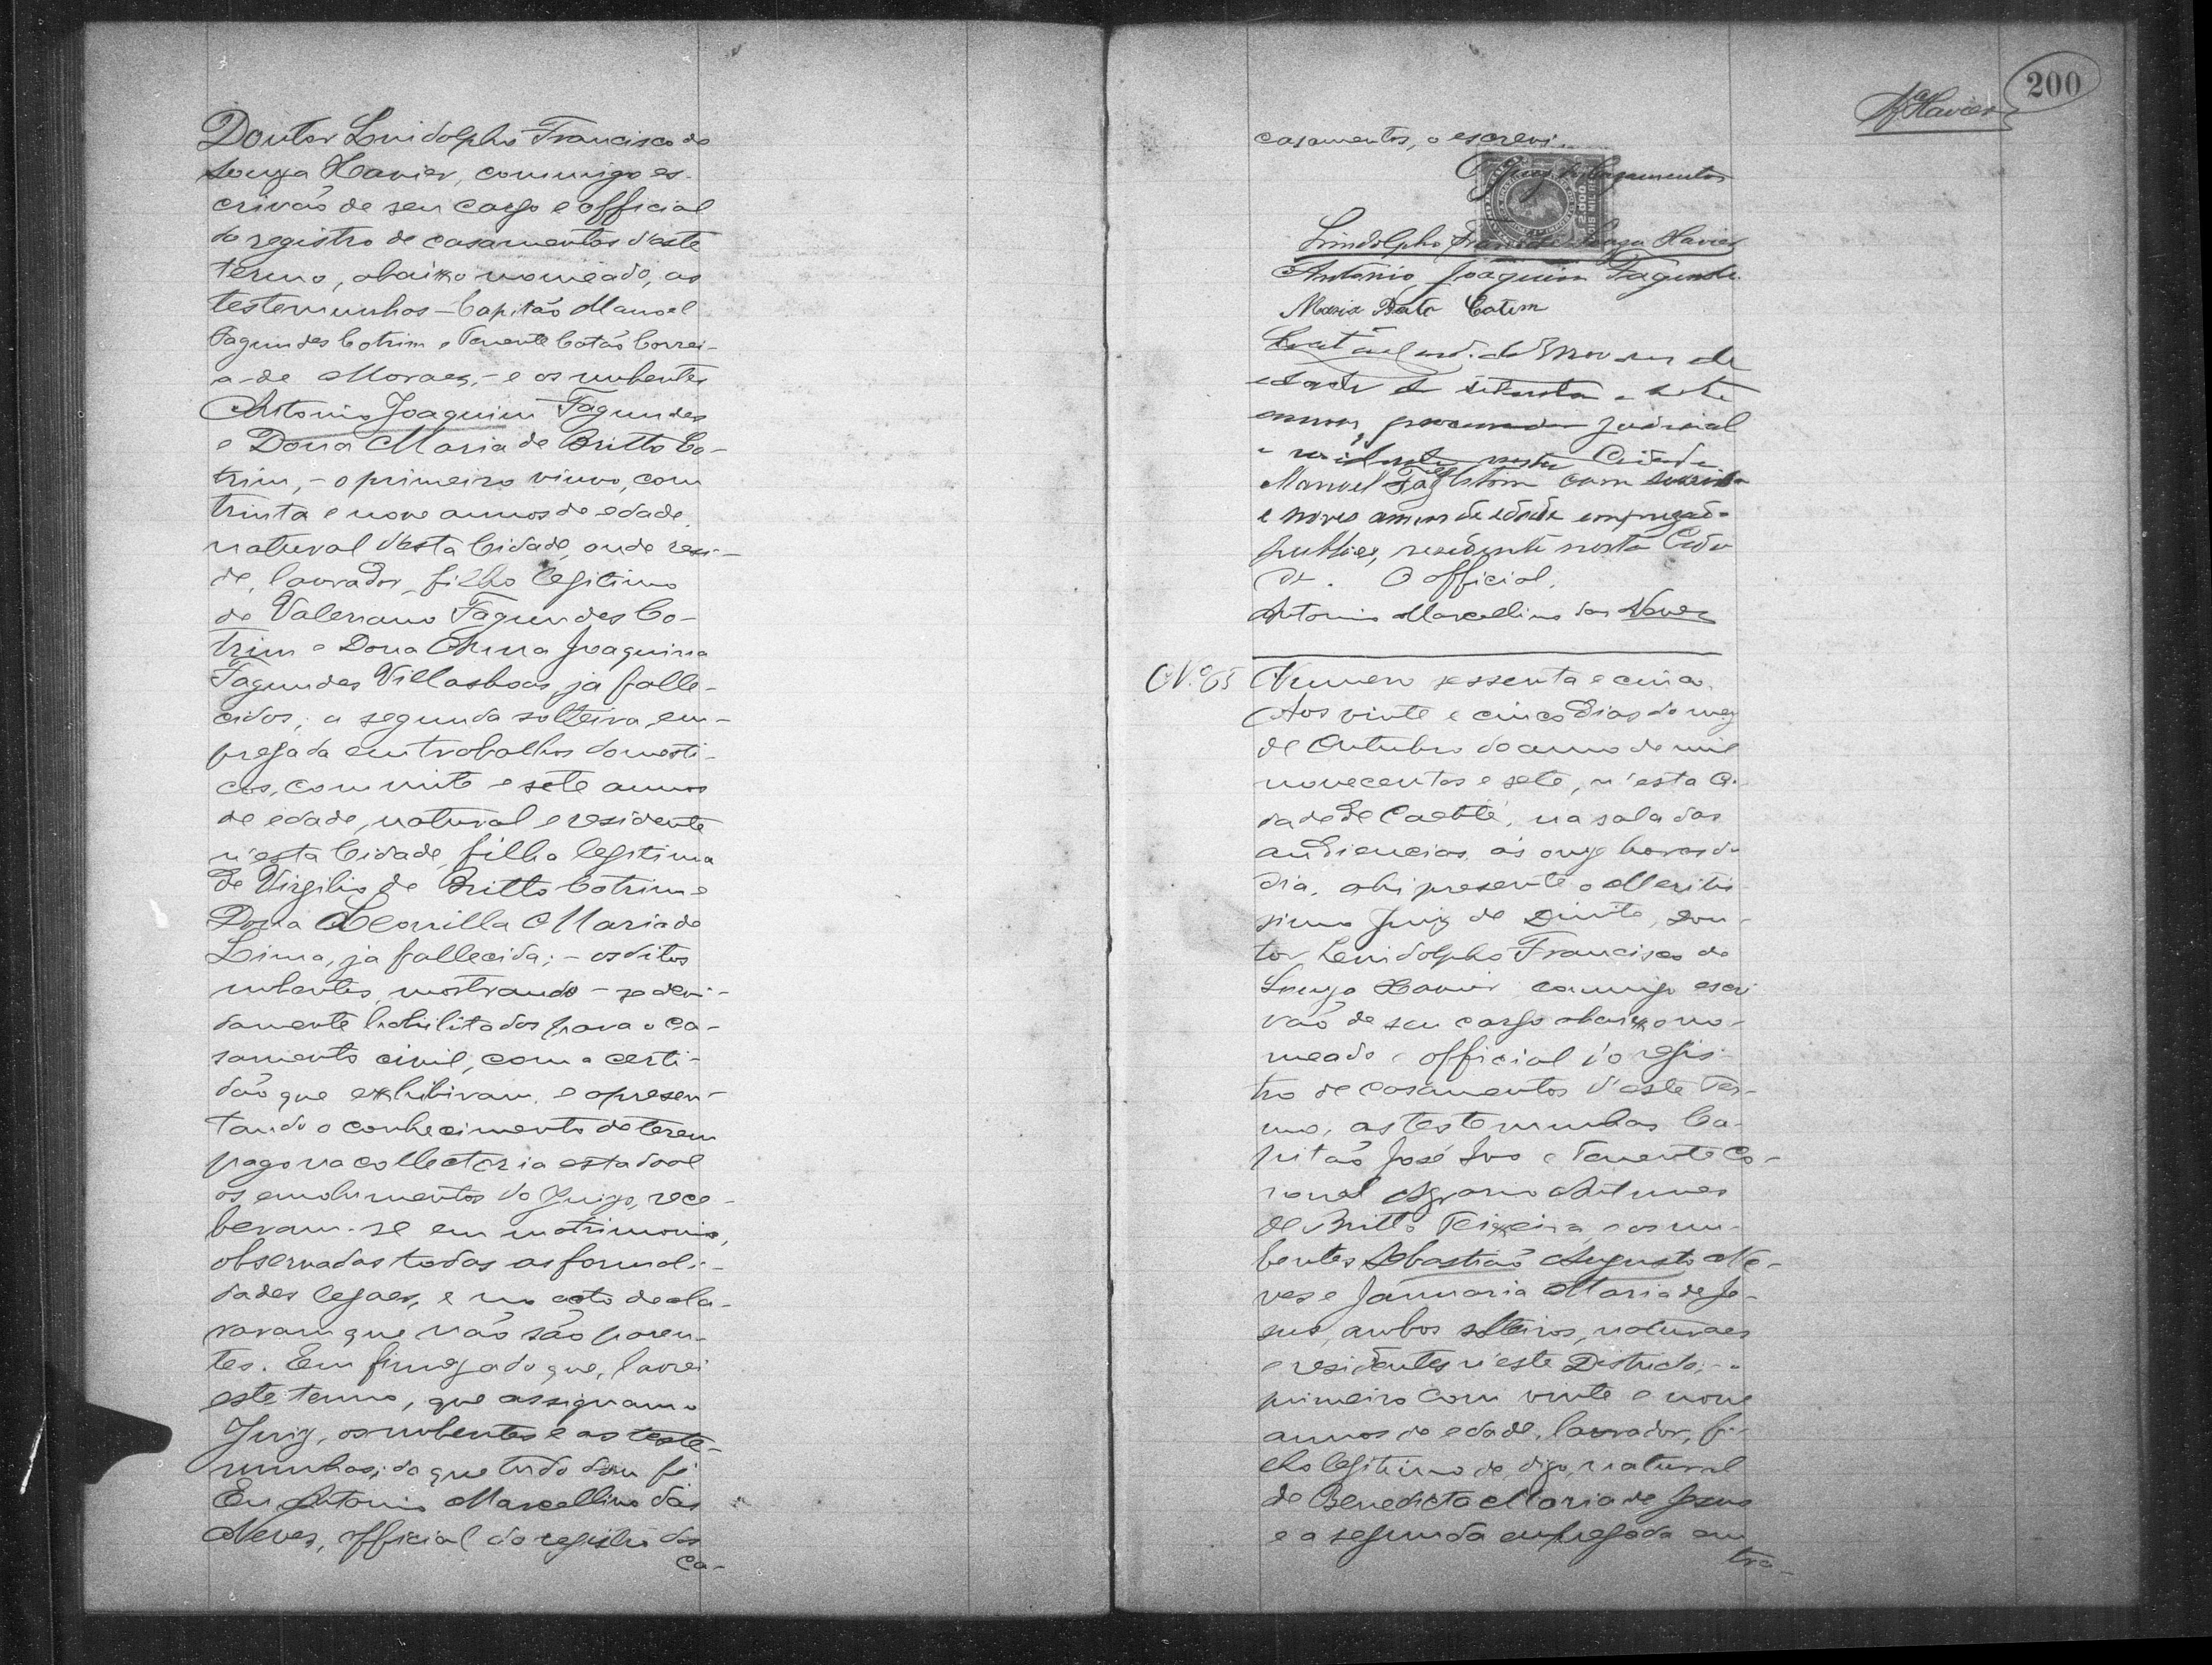 Doutor Lindolpho Francisco de
Souza Xavier, commigo es-
crivão de seu cargo e official
do registro de casamentos d'este
termo, abaixo nomeado, as
testemunhas - Capitão Manoel
Fagundes Cotrim e Tenente Catão Correi-
a de Moraes, - e os nubentes
Antonio Joaquim Fagundes
e Dona Maria de Britto Co-
trim, - o primeiro viuvo, com
trinta e nove annos de edade,
natural d'esta Cidade, onde resi-
de, lavrador, filho legitimo
de Valeriano Fagundes Co-
trim e Dona Anna Joaquina
Fagundes Villasboas, já falle-
cidos; a segunda solteira, em-
pregada em trabalhos domesti-
cos, com vinte e sete annos
de edade, natural e residente
n'esta Cidade, filha legitima
de Virgilio de Britto Cotrim e
Dona Leonilla Maria de
Lima, já fallecida; - os ditos
nubentes, mostrando-se devi-
damente habilitados para o ca-
samento civil, com a certi-
dão que exhibiram, e apresen-
tando o conhecimento de terem
pago na collectoria estadoal
os emolumentos do Juizo, rece-
beram-se em matrimonio,
observadas todas as formali-
dades legaes, e no acto decla-
raram que não são paren-
tes. Em firmeza do que, lavrei
este termo, que assignam o
Juiz, os nubentes e as teste-
munhas; do que tudo dou fé
Eu Antonio Marcellino das
Neves, official do registro dos
ca-
200
Xavier
casamentos, o escrevi.
Juiz de Casamentos
2.000
DOIS MIL REIS
Lindolpho Fran.co de Souza Xavier
Antonio Joaquim Fagundes
Maria Brito Cotrim
de
edade de setenta e sete
annos, procurador judicial
e residente nesta Cidade
Manoel Fag.des Cotrim com
e nove annos de edade empregado
publico, residente nesta Cida
de. O official,
Antonio Marcellino das Neves
N.º 65 Numero sessenta e cinco.
Aos vinte e cinco dias do mez
de Outubro do anno de mil
novecentos e sete, n'esta Ci-
dade de Caetité, na sala das
audiencias, ás onze horas do
dia, ahi presente o Meritis-
simo Juiz de Direito, Dou-
tor Lindolpho Francisco de
Souza Xavier commigo escri
vão de seu cargo abaixo no-
meado e official do regis-
tro de casamentos d'este ter-
mo, as testemunhas Ca-
pitão José Ivo e Tenente Co-
ronel Agrario Antunes
de Britto Teixeira, e os nu-
bentes Sebastião Augusto Ne-
ves e Januaria Maria de Je-
sus, ambos solteiros, naturaes
e residentes n'este Districto; - o
primeiro com vinte e nove
annos de edade, lavrador, fi-
lho legitimo de, digo, natural
de Benedicta Maria de Jesus
e a segunda empregada em
tra-